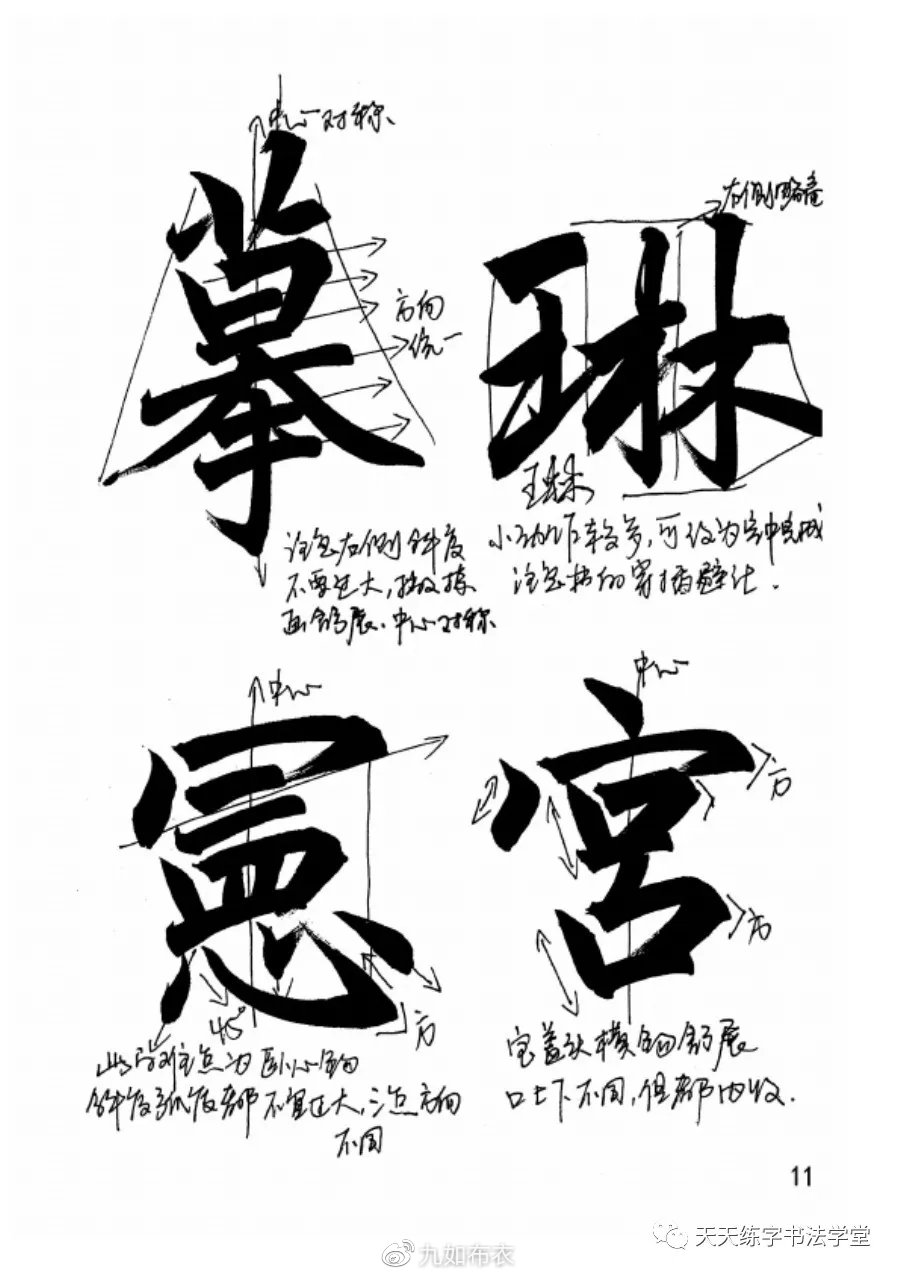 中心对称
摹
方向
统一
注意右侧斜度
不要过大，撇及捺
画舒展、中心对称
右侧略高
琳
琳
小动作较多，可以为空中完成
注意林的穿插避让.
中心
宪
45°
方
此字难点为卧心钩
斜度弧度都不宜过大，三点方向
不同
中心
宫
方
方
宝盖头横钩舒展
口上下不同，但都内收.
11
天天练字书法学堂
九如布衣